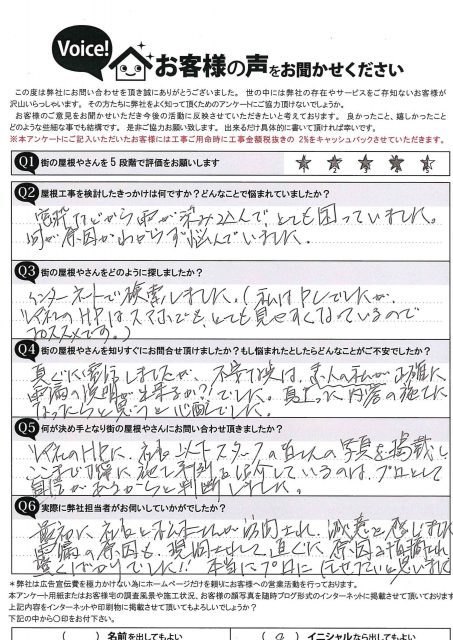 Voice!
お客様の声をお聞かせください
この度は弊社にお問い合わせを頂き誠にありがとうございました。世の中には弊社の存在やサービスをご存知ないお客様が
沢山いらっしゃいます。その方たちに弊社をよく知って頂くためのアンケートにご協力頂けないでしょうか。
お客様のご意見をお聞かせいただき今後の活動に反映させていただきたいと考えております。良かったこと、嬉しかったこと
どのような些細な事でも結構です。是非ご協力お願い致します。出来るだけ具体的に書いて頂ければ幸いです。
※本アンケートにご記入いただいたお客様には工事ご用命時に工事金額税抜きの2%をキャッシュバックさせていただきます。
Q1 街の屋根やさんを5段階で評価をお願いします
Q2 屋根工事を検討したきっかけは何ですか?どんなことで悩まれていましたか?
窓枠などから雨が染み込んでとても困っていました。
何が原因かわからず悩んでいました。
Q3 街の屋根やさんをどのように探しましたか?
インターネットで検索しました。(私はPCでしたが、
のHPはスマホでも、とても見やすくなっているので
オススメです。)
Q4 街の屋根やさんを知りすぐにお問合せ頂けましたか?もし悩まれたとしたらどんなことがご不安でしたか?
直ぐに電話しましたが、不安な点は、素人の私が正確に
雨漏の説明が出来るか?でした。間違った内容の施工に
なったらと思うと心配でした。
Q5 何が決め手となり街の屋根やさんにお問い合わせ頂きましたか?
のHPに、社長以下スタッフの皆さんの写真を掲載し
ここまで丁寧に施工事例を紹介しているのは、プロとして
自信があるからと判断しました。
Q6 実際に弊社担当者がお伺いしていかがでしたか?
最初に、社長と さんが訪問され、誠意を感じました
雨漏の原因も、現調されて直ぐに原因を指摘され
驚くばかりでした!!本当にプロに任せたいと思いました
*弊社は広告宣伝費を極力かけない為にホームページだけを頼りにお客様への営業活動を行っております。
本アンケート用紙またはお客様宅の調査風景や施工状況、お客様の顔写真を随時ブログ形式のインターネットに掲載させて頂いております
上記内容をインターネットや印刷物に掲載させて頂いてもよろしいでしょうか?
下記の中から○印をお付け下さい。
( )名前を出してもよい (○)イニシャルなら出してもよい